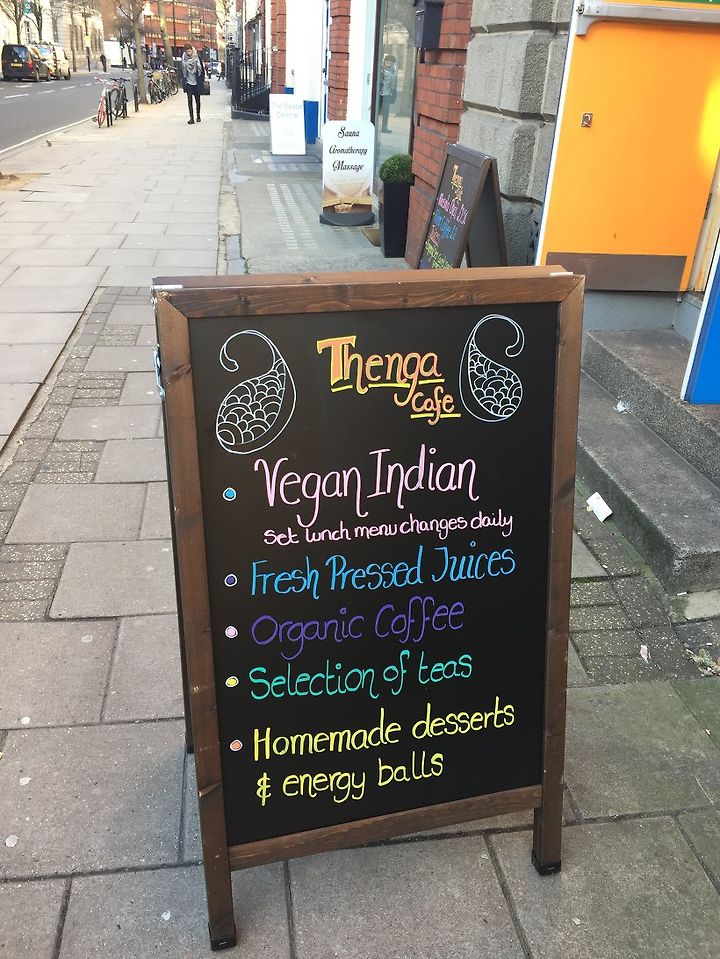 The Space
Centre
Sauna
Aromatherapy
Massage
Thenga
Cafe
Thenga
Cafe
Vegan Indian
Set lunch menu changes daily
Fresh Pressed Juices
Organic Coffee
Selection of teas
Homemade desserts
& energy balls